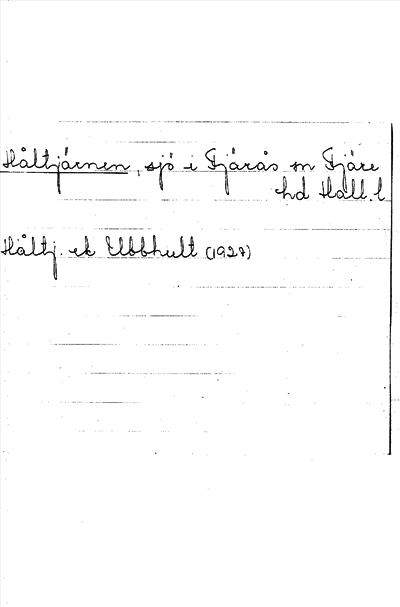 Håltjärnen, sjö i Fjärås sn Fjäre
hd Hall. l
Håltj. ek Ubbhult (1927)